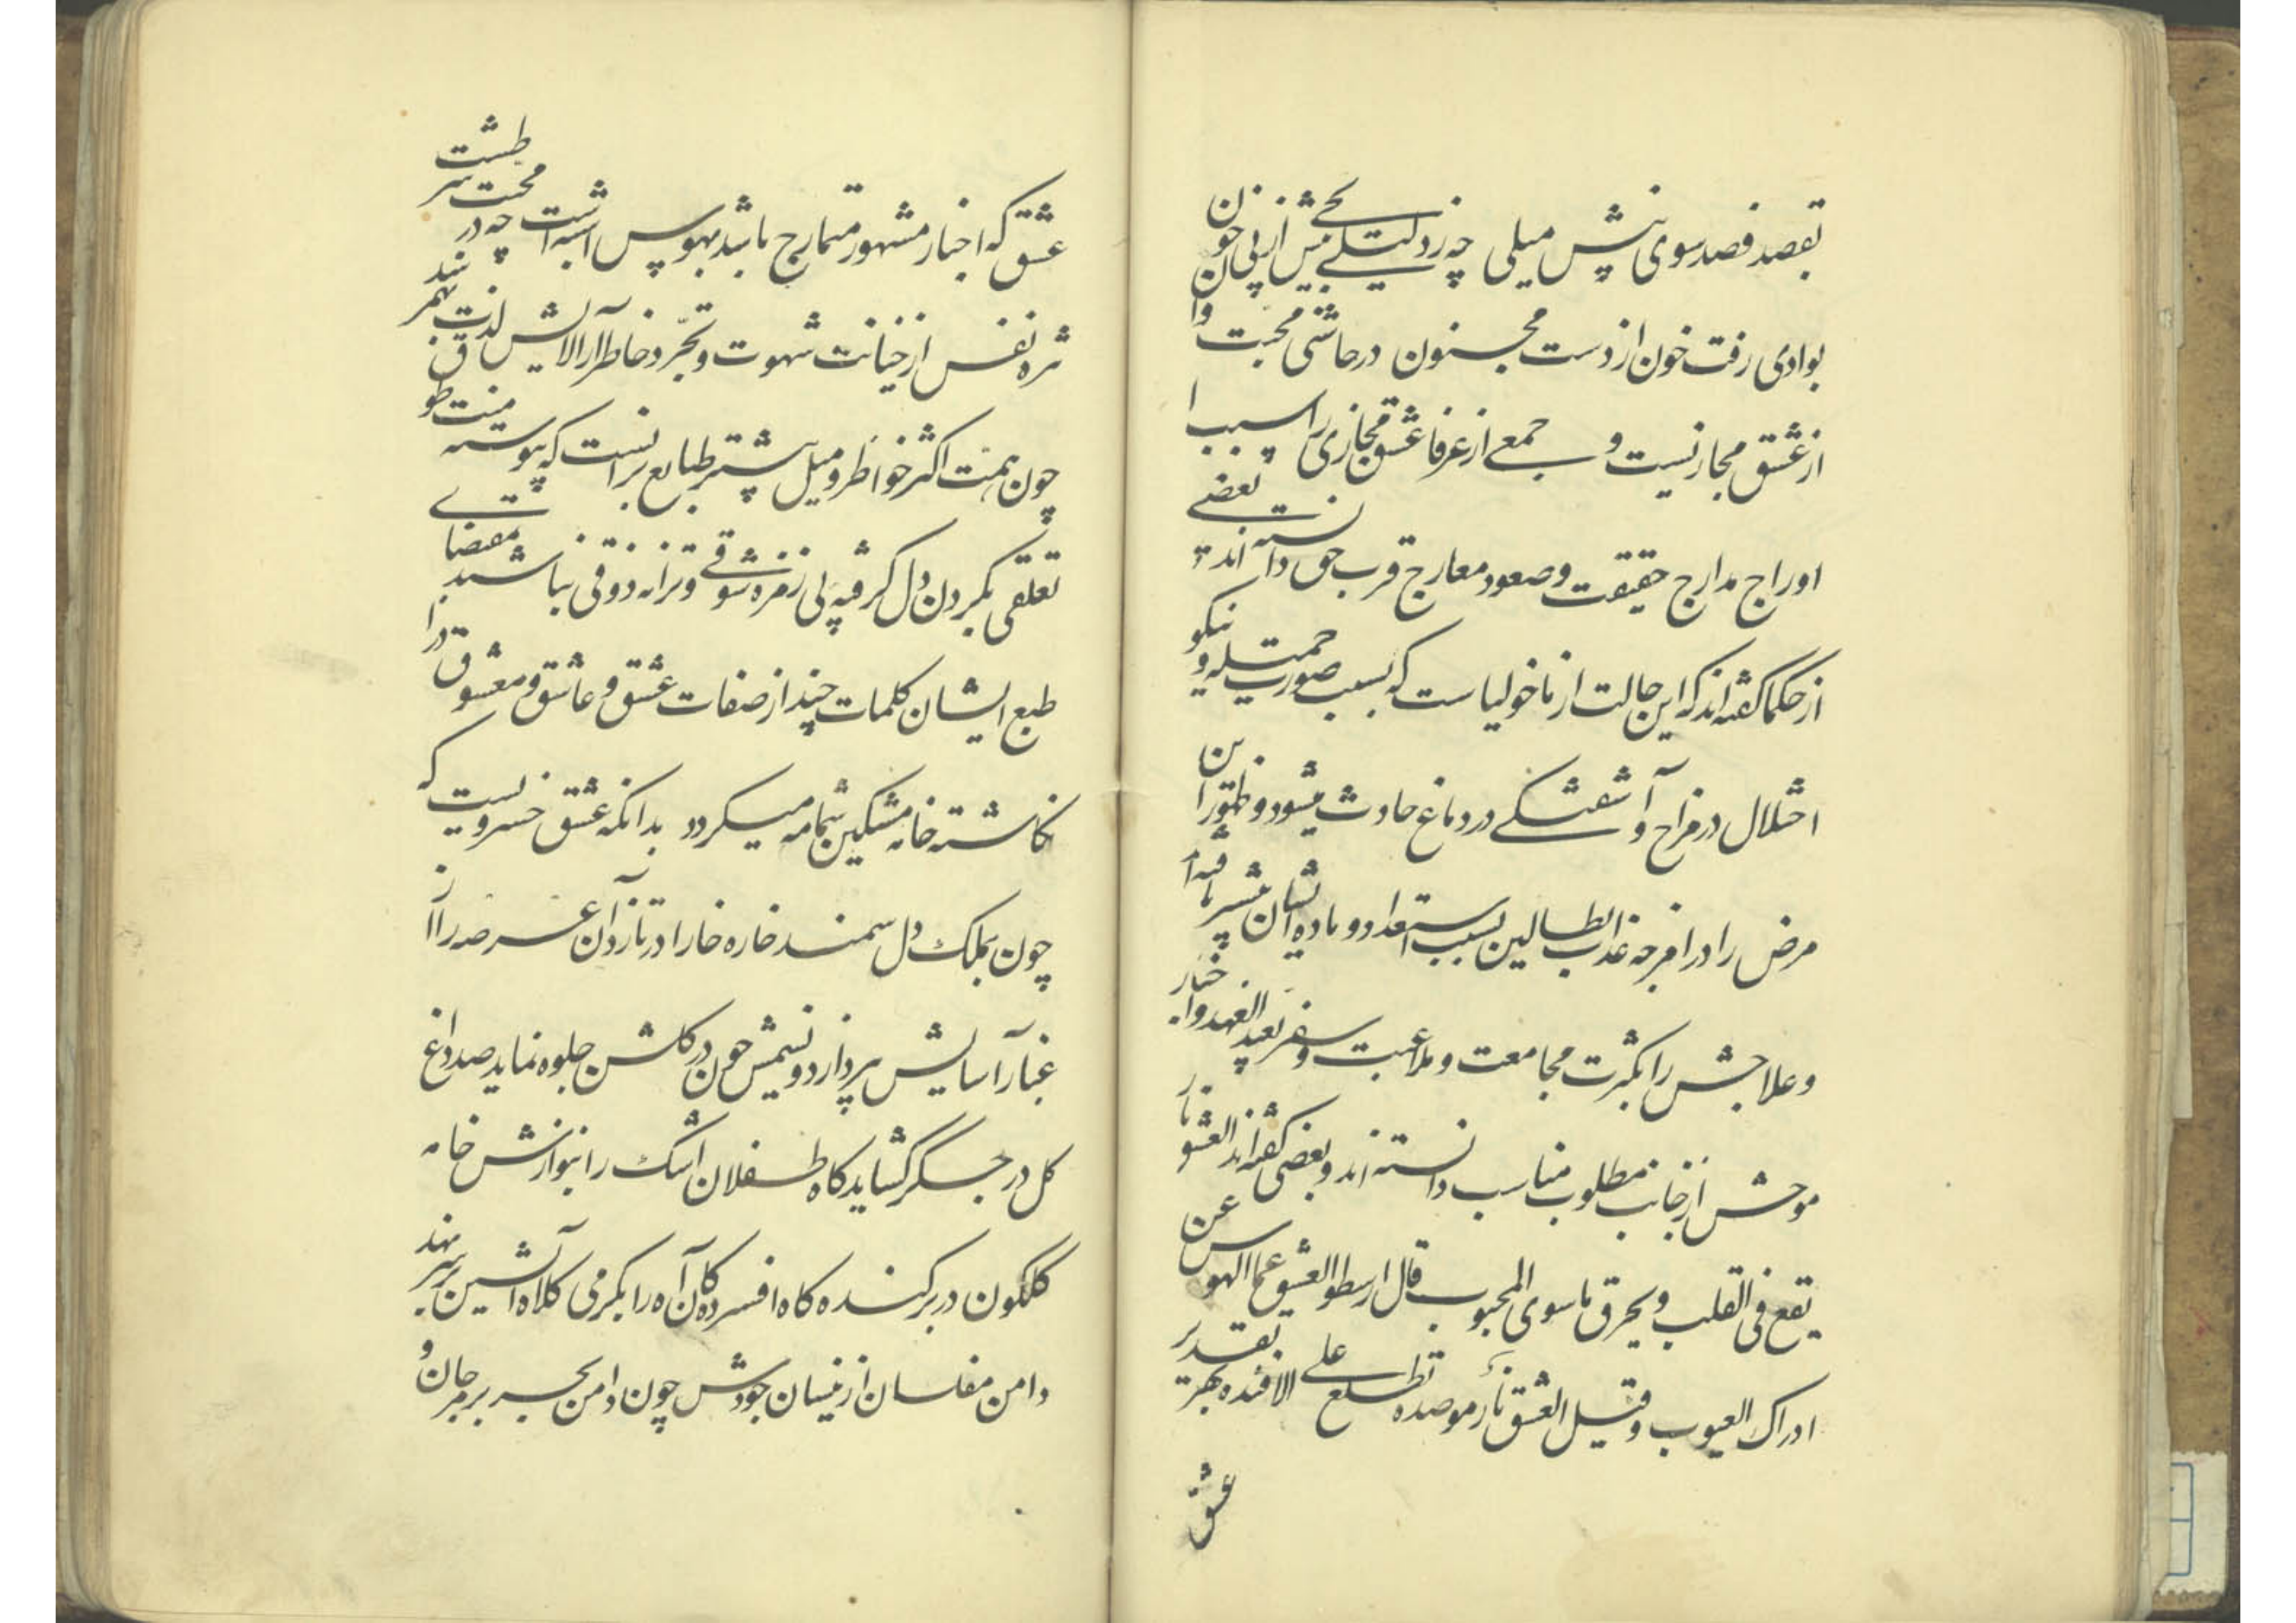 بقصد فصد سوی نیش میلی چه زد لیلی بحی نیش از پی خون
بوادی رفت خون از دست مجنون در حاشی محبت وان
از عشق مجاز نیست و جمعے از عرفا عشق مجازی را سبب ا
اوراج مدارج حقیقت و صعود معارج قرب حق دانسته اند بعضے
از حکما کفته اند که این حالت از ماخولیاست که بسبب صورت جمیله و نیکو
اختلال در مزاج و آشفتکے در دماغ حادث میشود و ظهور این
مرض را در امزجه عذب الطالین بسبب استعداد و ماده ایشان بیشتر یافته اند
و علاجش را بکثرت مجامعت و ملاعبت و سفر بعید العهد و اخبار
موحش از جانب مطلوب مناسب دانسته اند و بعضی کفته اند العشق نار
یقع فی القلب و یحرق ما سوی المحبوب قال ارسطو العشق عمی الهوس عن
ادراک العیوب و قیل العشق نار موصده تطلع علے الافئده بهر تقدیر
عشق
عشق که اخبار مشهور متمارج باشد بهوس اشبه است چه در محبت سر طشت
ثره نفس از خیانت شهوت و تجرد خاطر از آلایش لذت
چون همت اکثر خواطر و میل بیشتر طبایع برانست که پیوسته
تعلقی بکردن دل کر فیه پی زمزه شوقے و ترانه ذوقی نباشند مقتضاے
طبع ایشان کلمات چند از صفات عشق و عاشق و معشوق
نکاشته خامه مشکین شمامه میکردد بدانکه عشق خسرویست که
چون بملک دل سمند خاره خارا در تازد آن عرصه را از
غبار آسایش بپردازد و نسیمش چون در کلشن جلوه نماید صد داغ
کل در جسکر کشاید کاه طفلان اشک را بنوازش خامه
کلکون در بر کند و کاه افسردکان آه را بکرمی کلاه آتشین بر سر نهد
دامن مفلسان از نیسان جودش چون دامن بحر پر مرجان و